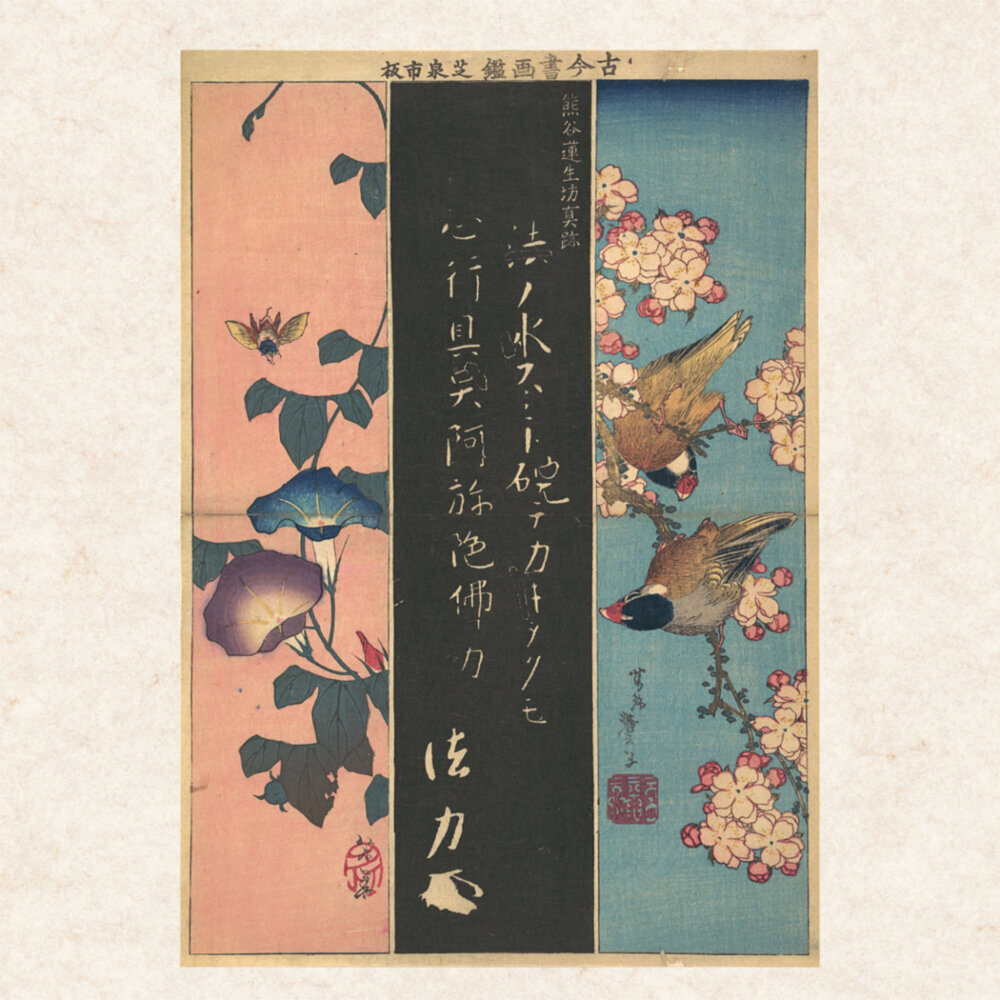 古今書画鑑 芝泉市板
熊谷蓮生坊真跡
法ノ水スミト硯テカキタクモ
心行具 阿弥陀佛力
法力